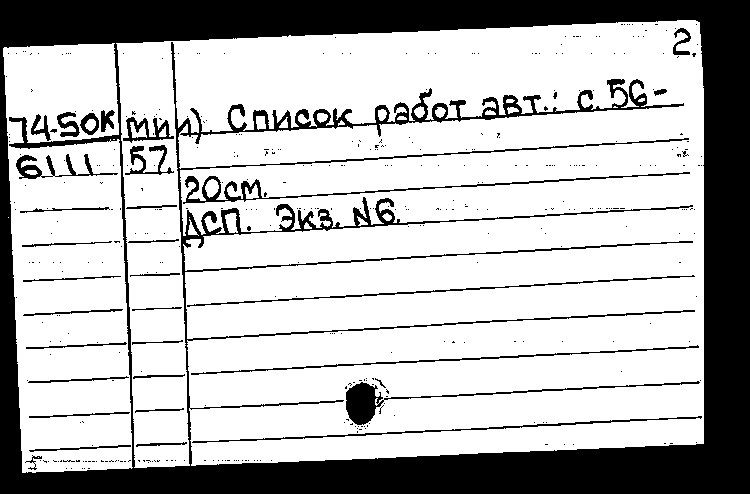 2.
74-50к мии). Список работ авт.: с. 56-
6111 57.
20см.
ДСП. Экз. №6.